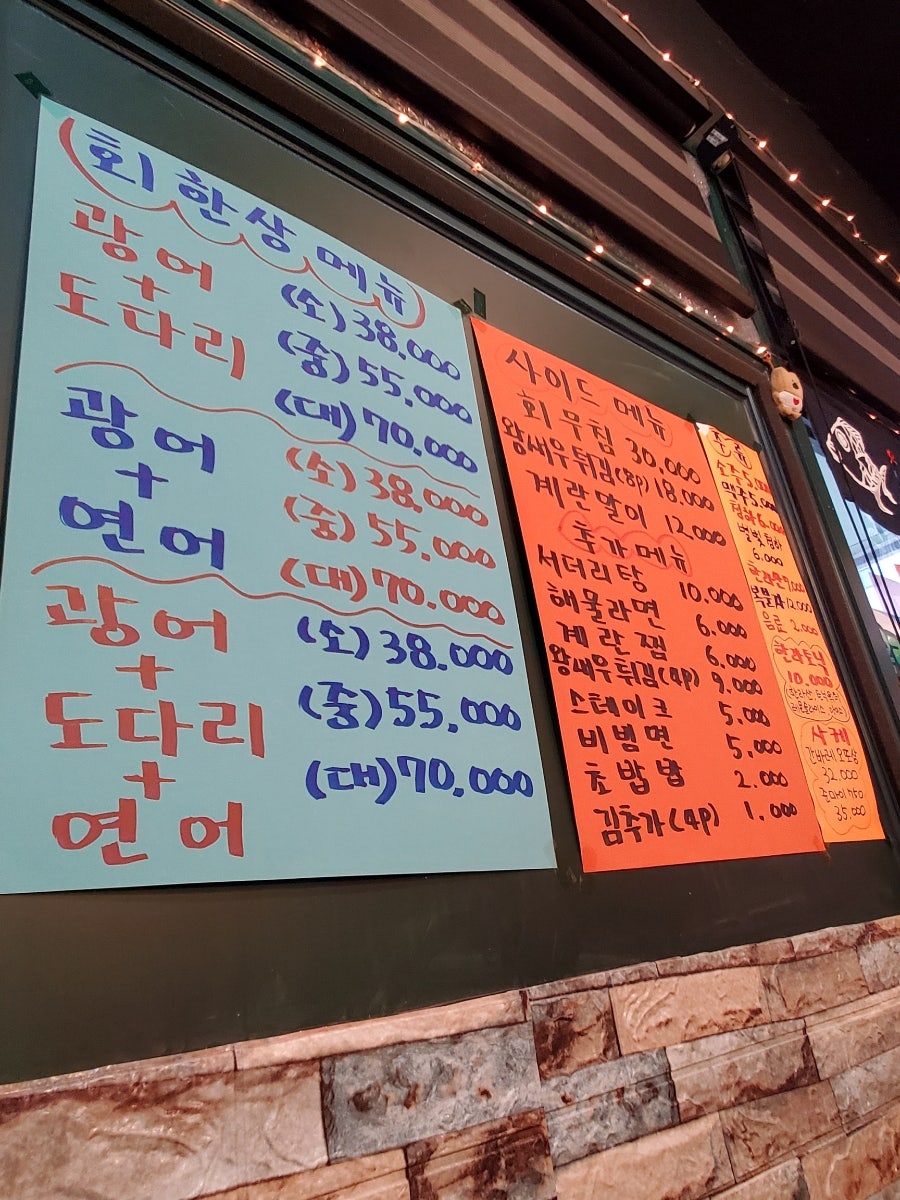 회 한상 메뉴
광어
+
도다리
(소) 38,000
(중) 55,000
(대) 70,000
광어
+
연어
(소) 38,000
(중) 55,000
(대) 70,000
광어
+
도다리
+
연어
(소) 38,000
(중) 55,000
(대) 70,000
사이드 메뉴
회 무침 30,000
왕새우튀김(8p) 18,000
계란말이 12,000
추가 메뉴
서더리탕 10,000
해물라면 6,000
계란찜 6,000
왕새우튀김(4p) 9,000
스테이크 5,000
비빔면 5,000
초밥밥 2,000
김추가(4p) 1,000
소주 5,000
맥주 5,000
청하 6,000
별빛청하
6,000
한라산 7,000
복분자 12,000
음료 2,000
한라토닉
10,000
사케
간바레 오또상
32,000
35,000